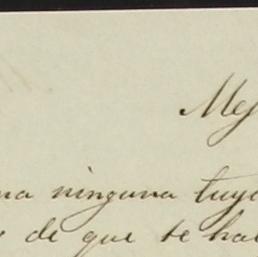 Mej
na ninguna tuya
de que te hal